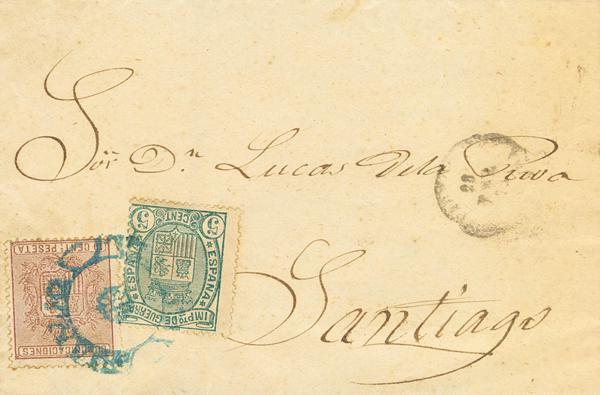 Sor. Dn. Lucas dela Riva
Santiago
5 CENT. 5
ESPAÑA
ESPAÑA
IMPTO DE GUERRA
10 CENT. PESETA
COMUNICACIONES
28